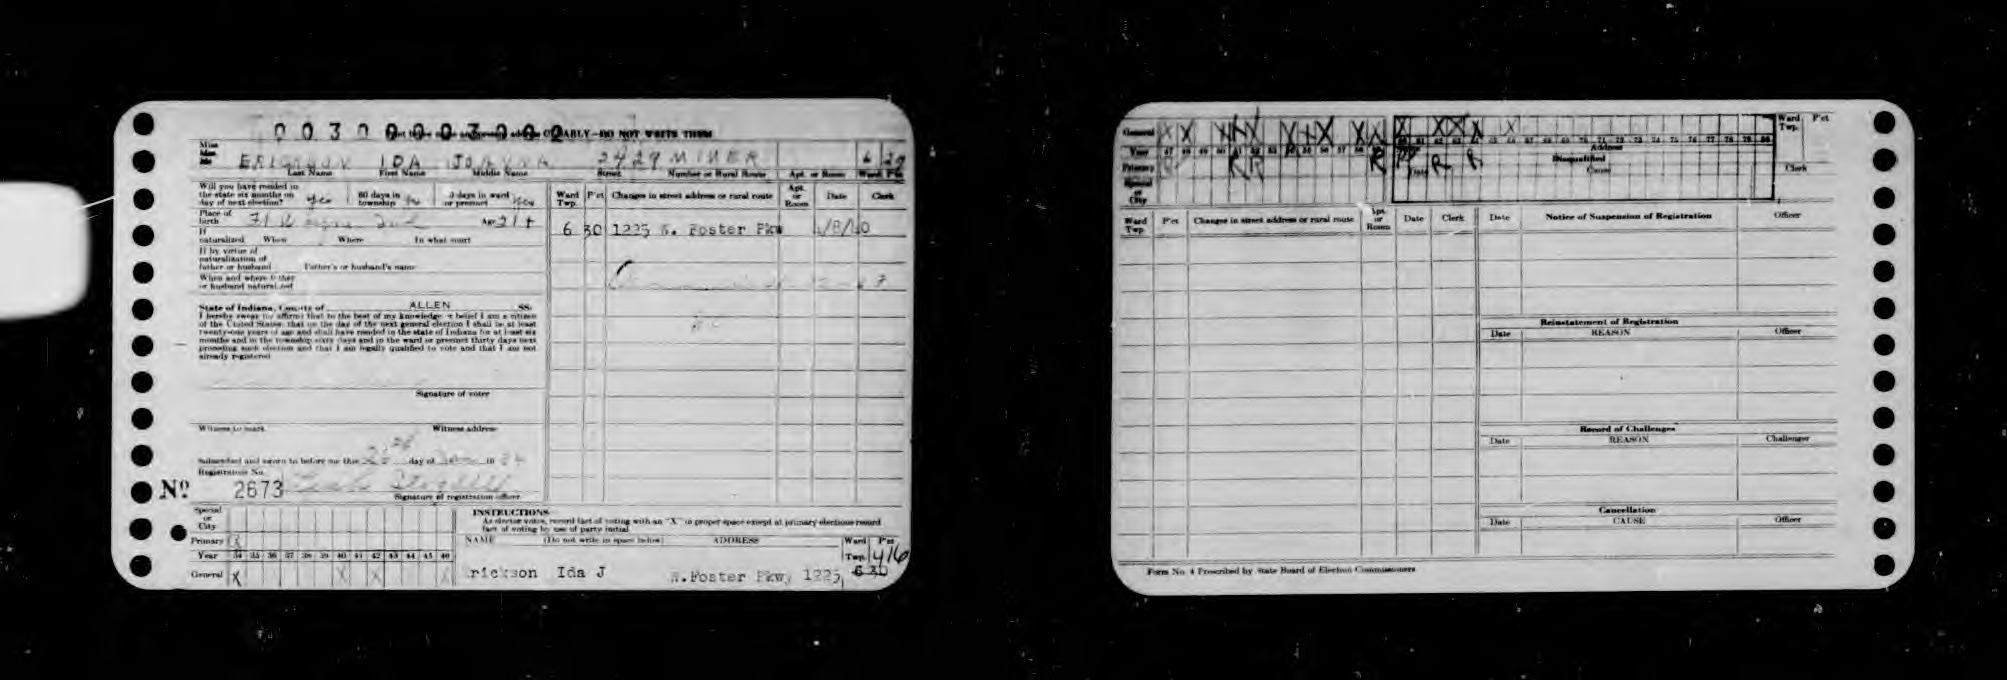 0030000003000
Miss
Mrs.
Mr.
ERICKSON IDA JOANNA 2429 MINER 6 29
Last Name First Name Middle Name Street Number or Rural Route Apt. or Room Ward Pct
Will you have resided in the state six months on day of next election? yes 60 days in township yes 30 days in ward or precinct yes
Place of birth Ft Wayne Ind Age 21+
If naturalized When Where In what court
If by virtue of naturalization of father or husband Father's or husband's name
When and where father or husband naturalized
State of Indiana, County of ALLEN SS:
I hereby swear (or affirm) that to the best of my knowledge & belief I am a citizen
of the United States; that on the day of the next general election I shall be at least
twenty-one years of age and shall have resided in the state of Indiana for at least six
months and in the township sixty days and in the ward or precinct thirty days next
preceding such election and that I am legally qualified to vote and that I am not
already registered
Signature of voter
Witness to mark Witness address
Subscribed and sworn to before me this day of 19 34
Registration No.
No 2673
Signature of registration officer
Ward Twp. P'ct Changes in street address or rural route Apt. or Room Date Clerk
6 30 1225 W. Foster Pkw
Special or City
Primary
Year 34 35 36 37 38 39 40 41 42 43 44 45 46
General X X X
INSTRUCTIONS
As elector votes, record fact of voting with an "X" in proper space except at primary elections record
fact of voting by use of party initial
NAME (Do not write in space below) ADDRESS Ward Twp. Pct
rickson Ida J W. Foster Pkwy 1225 6 30 416
General X X X X X X X X X X X X X X
Year 47 48 49 50 51 52 53 54 55 56 57 58 59 60 61 62 63 64 65 66 67 68 69 70 71 72 73 74 75 76 77 78 79 80
Primary R R R R R R
Special or City
Address
Disqualified
Date Cause
Ward Twp. P'ct
Clerk
Ward Twp. P'ct Changes in street address or rural route Apt. or Room Date Clerk
Date Notice of Suspension of Registration Officer
Reinstatement of Registration
Date REASON Officer
Record of Challenges
Date REASON Challenger
Cancellation
Date CAUSE Officer
Form No. 4 Prescribed by State Board of Election Commissioners